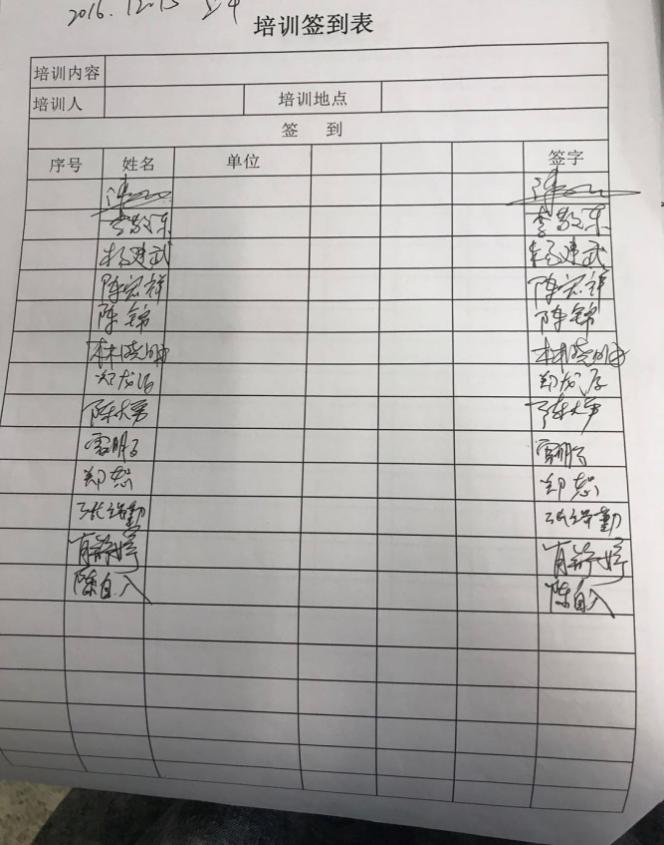 2016.12.15
培训签到表
培训内容
培训人 培训地点
签 到
序号 姓名 单位 签字
李敬东 李敬东
杨建武 杨建武
陈宏祥 陈宏祥
陈锦 陈锦
林晓明 林晓明
郑龙 郑龙
陈大勇 陈大勇
雷明 雷明
郑恕 郑恕
张端勤 张端勤
肖婷婷 肖婷婷
陈自入 陈自入